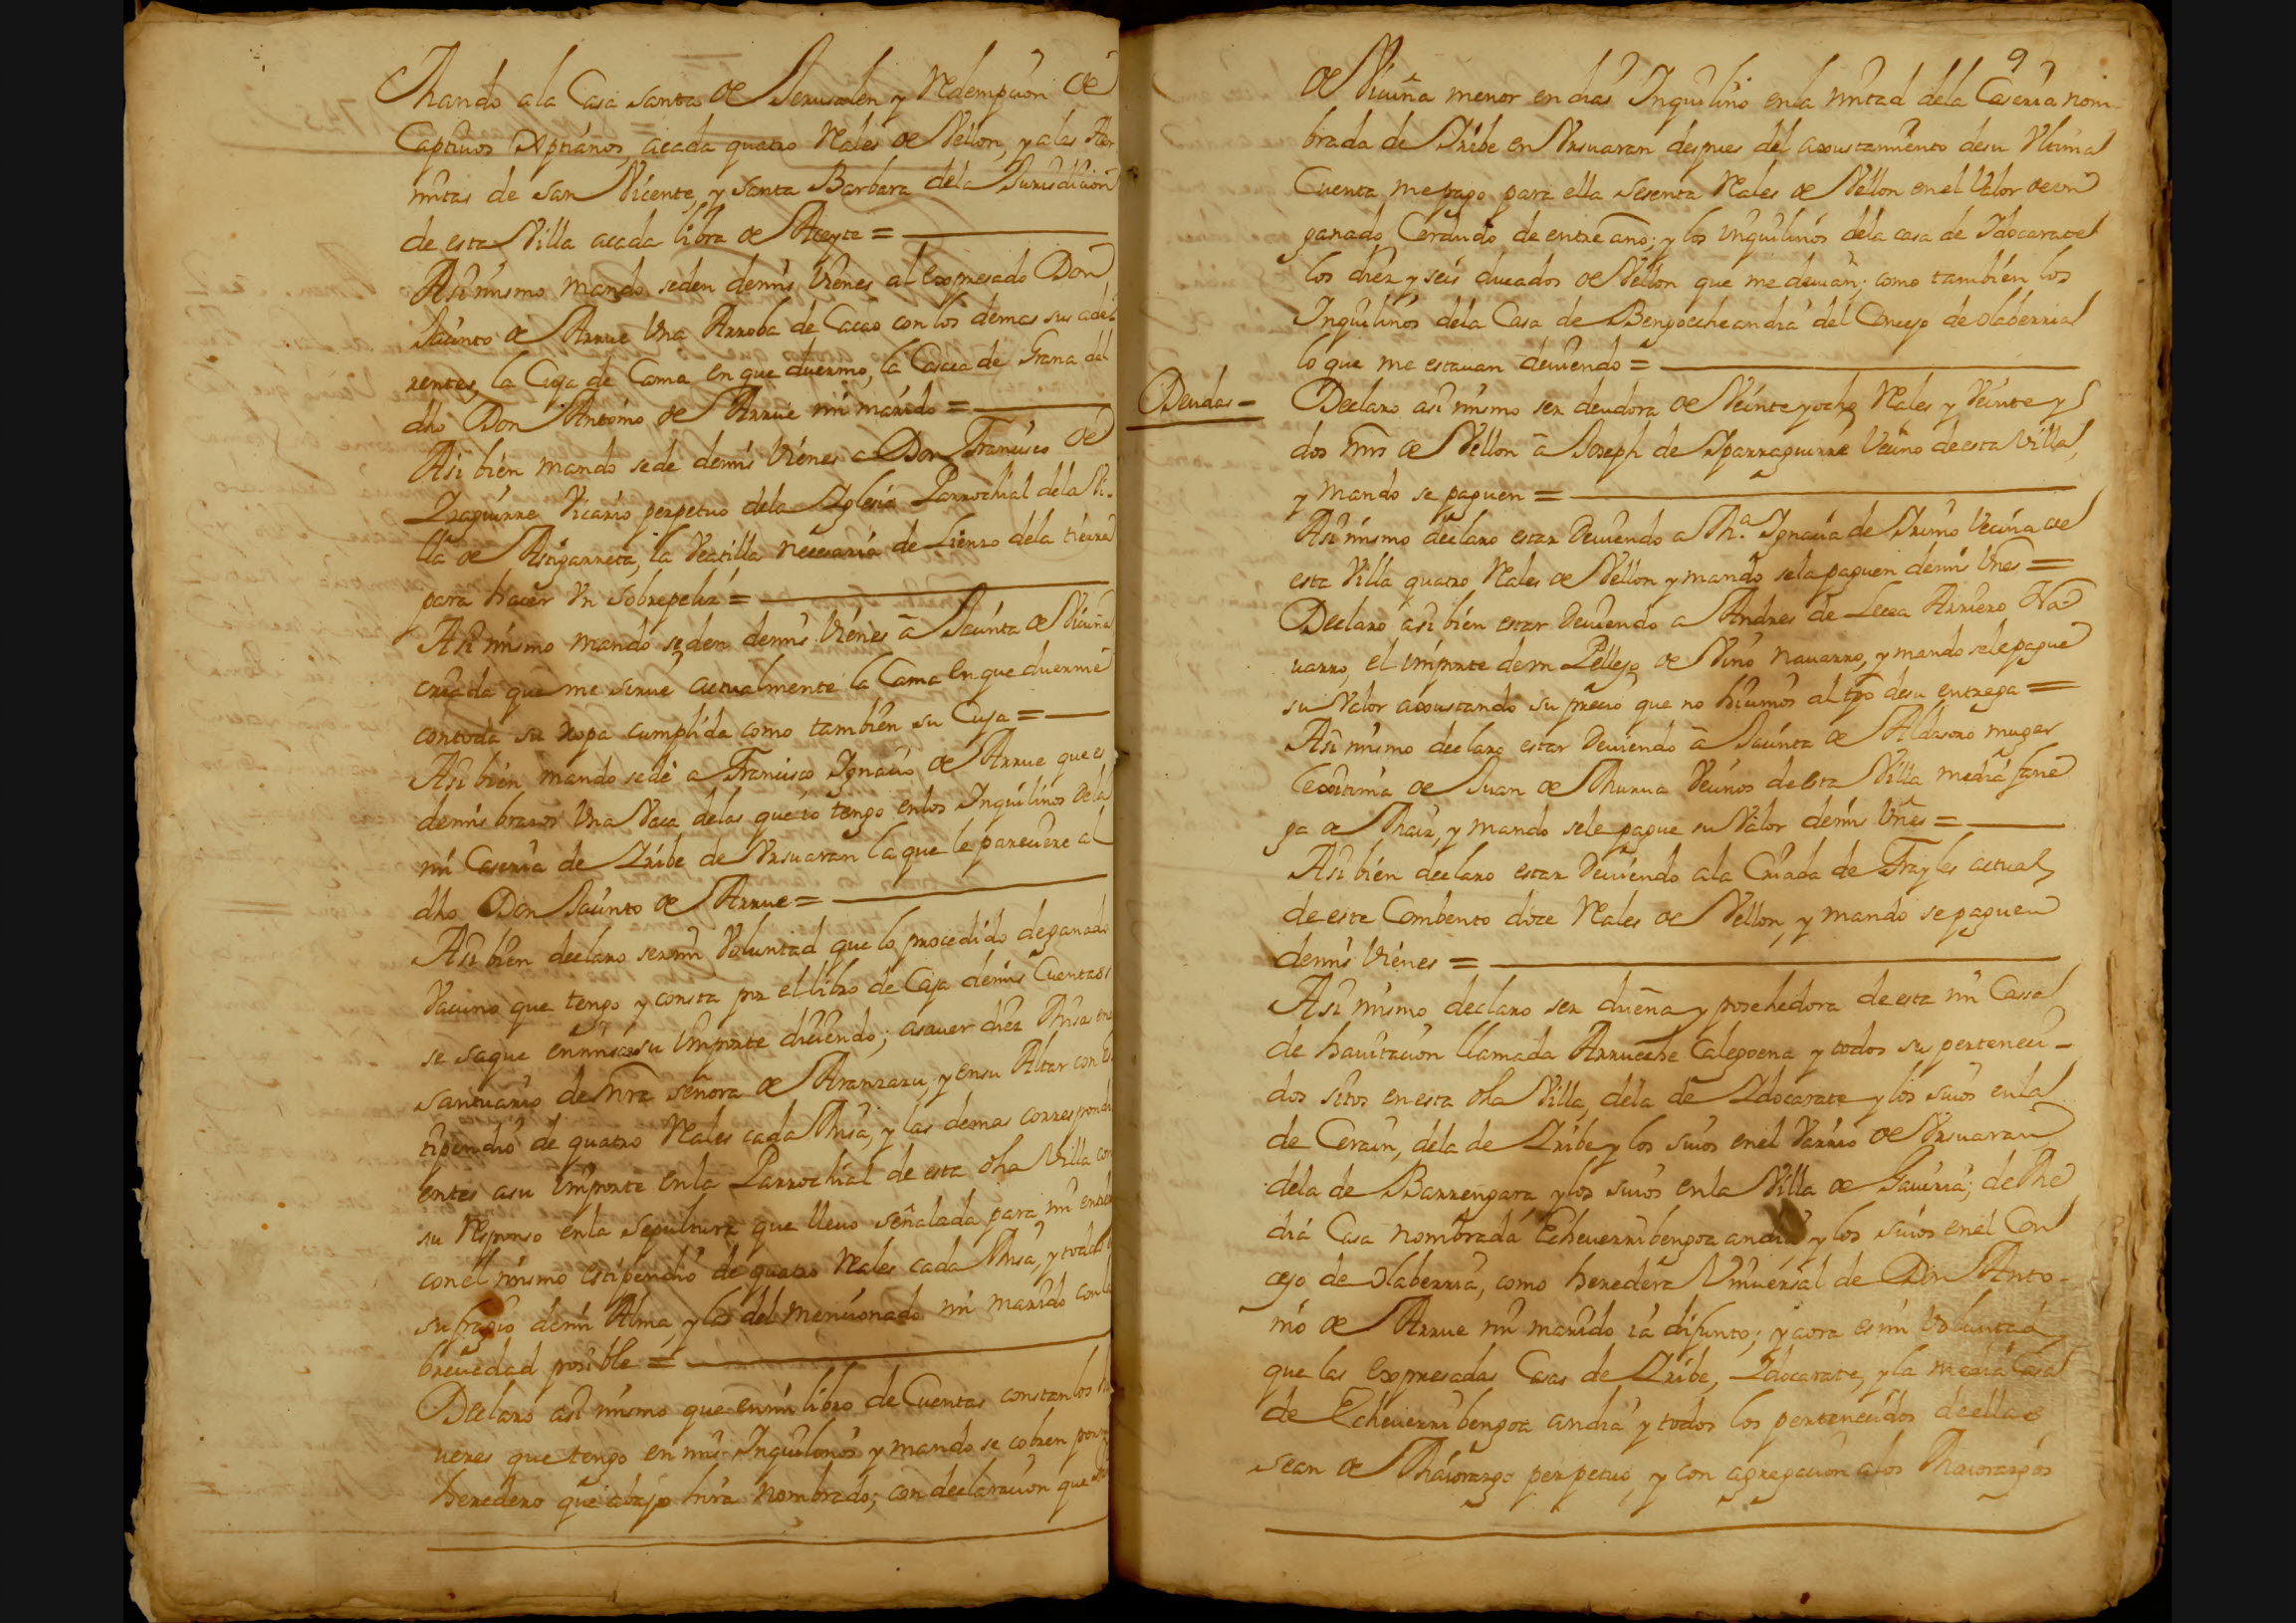 Mando ala Casa santa de Jerusalen y Redempcion de
Captivos Xptianos, acada quatro Reales de Vellon, y alas Her
mitas de san Vicente, y santa Barbara dela Jurisdicion
de esta Villa acada libra de Aceyte =
Asi mismo mando seden demis vienes al expresado Don
Jacinto de Arrue Una Arroba de Cacao con los demas sus ade
rentes, la Cuja de Cama en que duermo, la Casaca de Grana del
dho Don Antonio de Arrue mi marido =
Asi bien mando sede demis vienes a Don Francisco de
Yzaguirre Vicario perpetuo dela Yglesia Parrochial dela Vi-
lla de Astigarreta, la Veatilla necesaria de Lienzo dela tierra
para hacer Un sobrepeliz =
Asi mismo mando seden demis vienes â Jacinta de Vicuña
criada que me sirue actualmente la Cama en que duerme
contoda su ropa cumplida como tambien su Cuja =
Asi bien mando sede a Francisco Ygnacio de Arrue que es
demis brazos Una Vaca delas que io tengo enlos Inquilinos dela
mi Caseria de Yribe de Ursuaran la que le pareciere al
dho Don Jacinto de Arrue =
Asi bien declaro ser mi Voluntad que lo procedido deganado
Vacuno que tengo y consta por el libro de Caja demis Cuentas
se saque enmisas su importe diciendo; asauer diez Misas enel
santuario de Nra señora de Aranzazu, y ensu Altar con Es
tipendio de quatro Reales cada Misa, y las demas correspondi
entes asu importe enla Parrochial de esta dha Villa con
su Responso enla sepultura que lleuo señalada para mi entierro
conel mismo estipendio de quatro Reales cada Misa, y todas en
sufragio demi Alma, y la del mencionado mi marido con la
breuedad posible =
Declaro asi mismo que enmi libro de Cuentas constan los ha
ueres que tengo en mis Inquilinos y mando se cobren por mi
heredero que abajo hira nombrado; con declaracion que
9
de Vicuña menor endias Inquilino enla mitad dela Caseria nom
brada de Yribe en Ursuaran despues del axustamiento desu Ultima
Cuenta me pago para ella sesenta Reales de Vellon enel Valor deun
ganado Cerdudo de entre año; y los Inquilinos dela casa de Ydocarate
los diez y seis ducados de Vellon que me deuian; como tambien los
Inquilinos dela Casa de Bengoecheandia del Concejo de olaberria
lo que me estauan deuiendo =
Deudas = Declaro asi mismo ser deudora de Veinte y ocho Reales y Veinte y
dos mrs de Vellon â Joseph de Yparraguirre Vecino de esta Villa,
y mando se paguen =
Asi mismo declaro estar Deuiendo a Mª Ygnacia de Yrimo Vecina de
esta Villa quatro Reales de Vellon y mando sela paguen demis Vnes =
Declaro asi bien estar Deuiendo a Andres de Lecea Arriero Na
uarro, el importe deun Pellejo de Vino nauarro, y mando sele pague
su Valor axustando su precio que no hicimos al tpo desu entrega =
Asi mismo declaro estar Deuiendo â Jacinta de Aldasoro muger
Lexitima de Juan de Murua Vecinos de esta Villa media fane
ga de Maiz, y mando sele pague su Valor demis Vnes =
Asi bien declaro estar Deuiendo ala Criada de Frayles actual
de este Combento doce Reales de Vellon, y mando se paguen
demis Vienes =
Asi mismo declaro ser dueña y posehedora de esta mi Cassa
de hauitacion llamada Arrueche Calegoena y todos su perteneci-
dos sitos en esta dha Villa, dela de Ydocarate y los suios enla
de Cerain, dela de Yribe y los suios enel Varrio de Ursuaran
dela de Barrengara y los suios enla Villa de Gauiria; de Me
dia Casa nombrada Echeuerribengoa andia y los suios enel Con
cejo de olaberria, como heredera Uniuersal de Don Anto-
nio de Arrue mi marido ia difunto; y aora es mi Voluntad
que las expresadas Casas de Yribe, Ydocarate, y la media Casa
de Echeuerribengoa andia y todos los pertenecidos de ellas
sean de Maiorazgo perpetuo, y con agregacion alos Maiorazgos